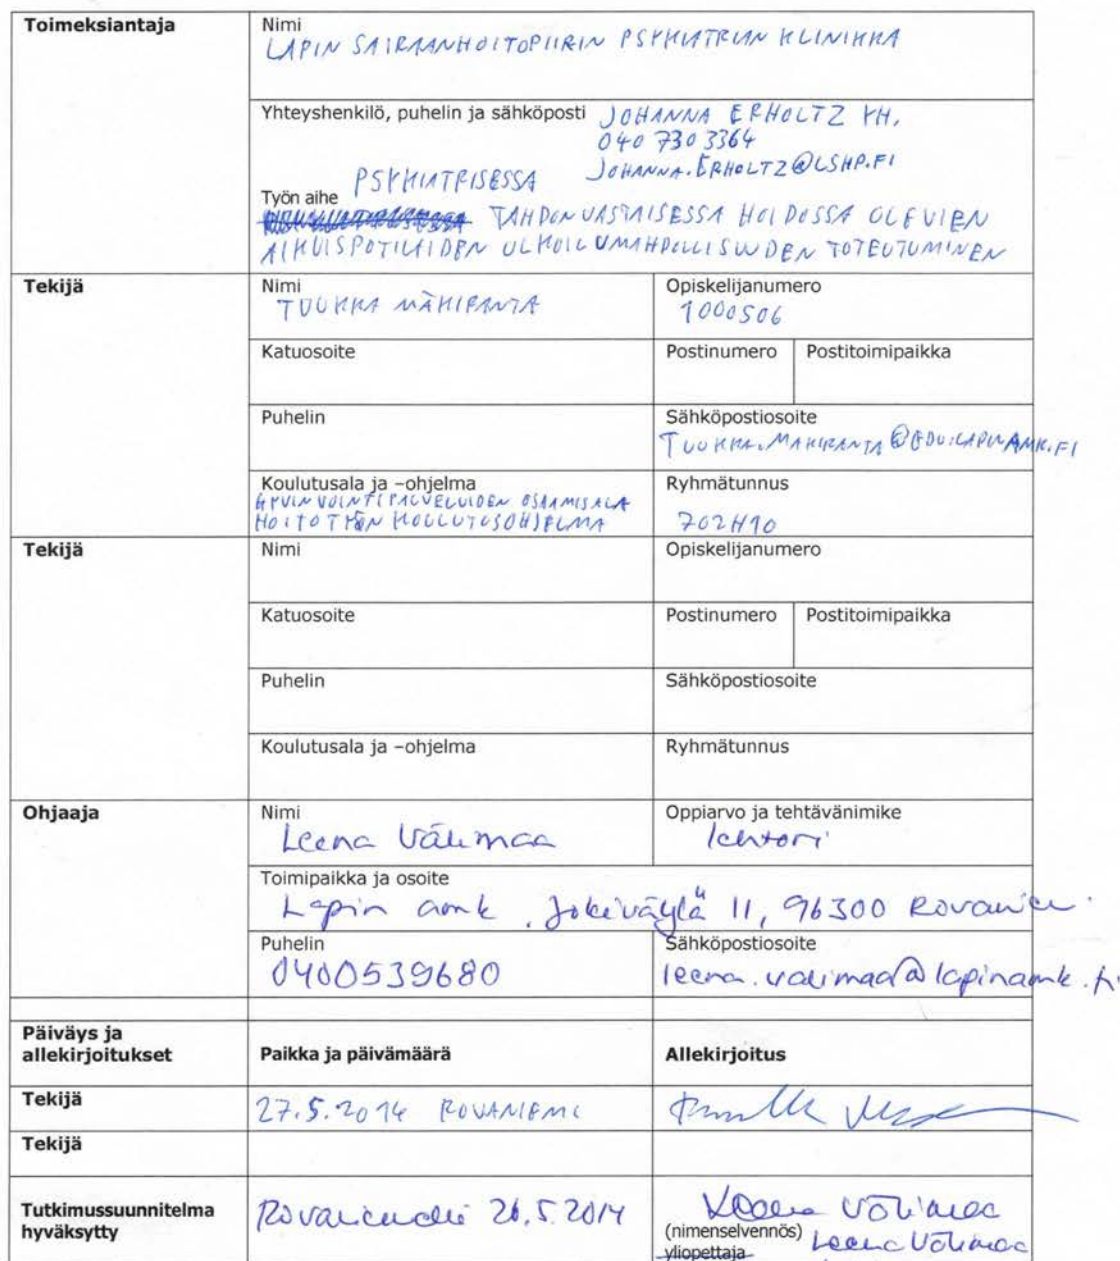 Toimeksiantaja
Nimi
LAPIN SAIRAANHOITOPIIRIN PSYKIATRIAN KLINIKKA
Yhteyshenkilö, puhelin ja sähköposti JOHANNA ERHOLTZ YH,
040 730 3364
JOHANNA.ERHOLTZ@LSHP.FI
PSYKIATRISESSA
Työn aihe
TAHDONVASTAISESSA HOIDOSSA OLEVIEN
AIKUISPOTILAIDEN ULKOILUMAHDOLLISUUDEN TOTEUTUMINEN
Tekijä
Nimi
TUUKKA MÄKIRANTA
Opiskelijanumero
1000506
Katuosoite
Postinumero
Postitoimipaikka
Puhelin
Sähköpostiosoite
TUUKKA.MAKIRANTA@EDU.LAPINAMK.FI
Koulutusala ja –ohjelma
HYVINVOINTIPALVELUIDEN OSAAMISALA
HOITOTYÖN KOULUTUSOHJELMA
Ryhmätunnus
702H10
Tekijä
Nimi
Opiskelijanumero
Katuosoite
Postinumero
Postitoimipaikka
Puhelin
Sähköpostiosoite
Koulutusala ja –ohjelma
Ryhmätunnus
Ohjaaja
Nimi
Leena Välimaa
Oppiarvo ja tehtävänimike
lehtori
Toimipaikka ja osoite
Lapin amk, Jokiväylä 11, 96300
Puhelin
0400539680
Sähköpostiosoite
leena.valimaa@lapinamk.fi
Päiväys ja
allekirjoitukset
Paikka ja päivämäärä
Allekirjoitus
Tekijä
27.5.2014 ROVANIEMI
Tekijä
Tutkimussuunnitelma
hyväksytty
26.5.2014
Leena Välimaa
(nimenselvennös) Leena Välimaa
yliopettaja